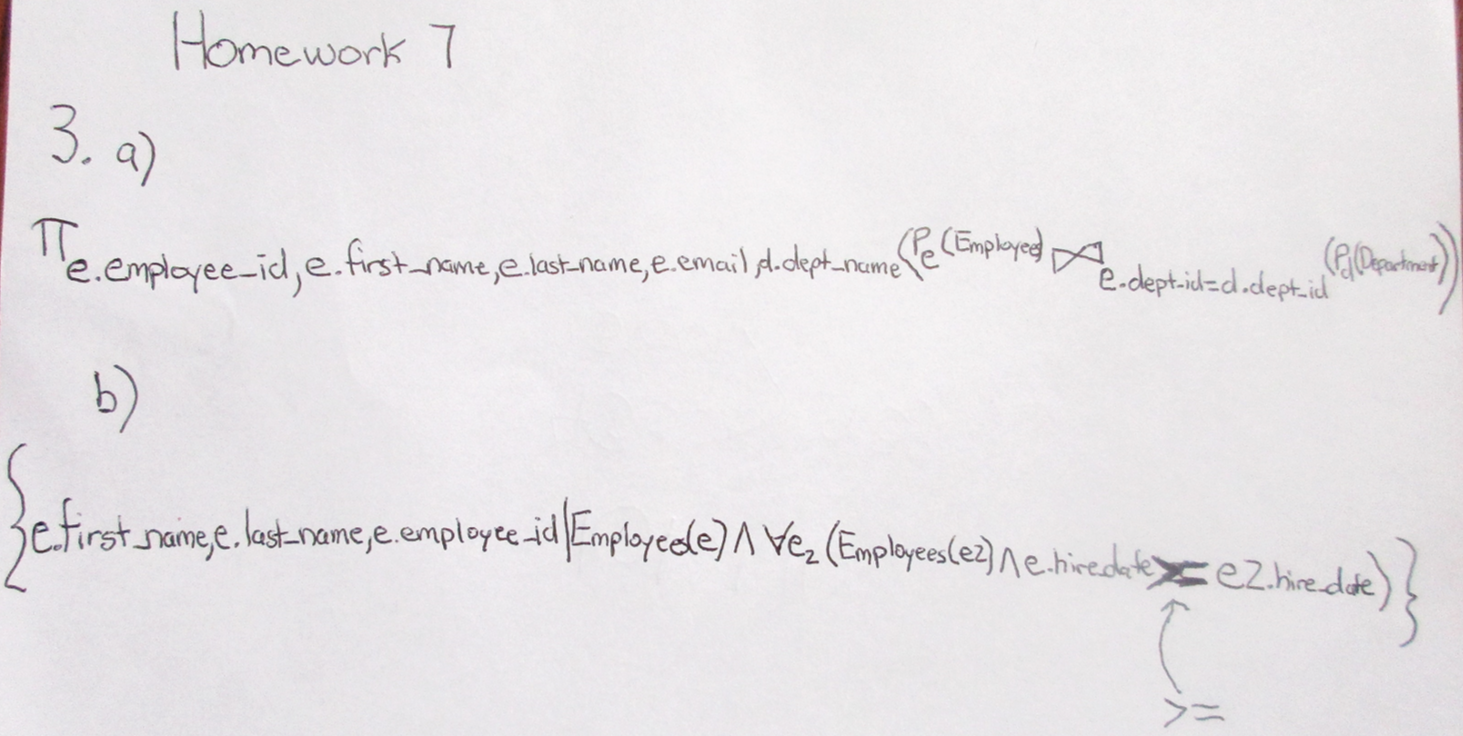 Homework 7
3. a)
π e.employee_id, e.first_name, e.last_name, e.email, d.dept_name (ρe (Employees) ⋈ e.dept_id=d.dept_id (ρd(Department)))
b)
{e.first_name, e.last_name, e.employee_id | Employees(e) ∧ ∀e2 (Employees(e2) ∧ e.hire_date >= e2.hire_date)}
>=